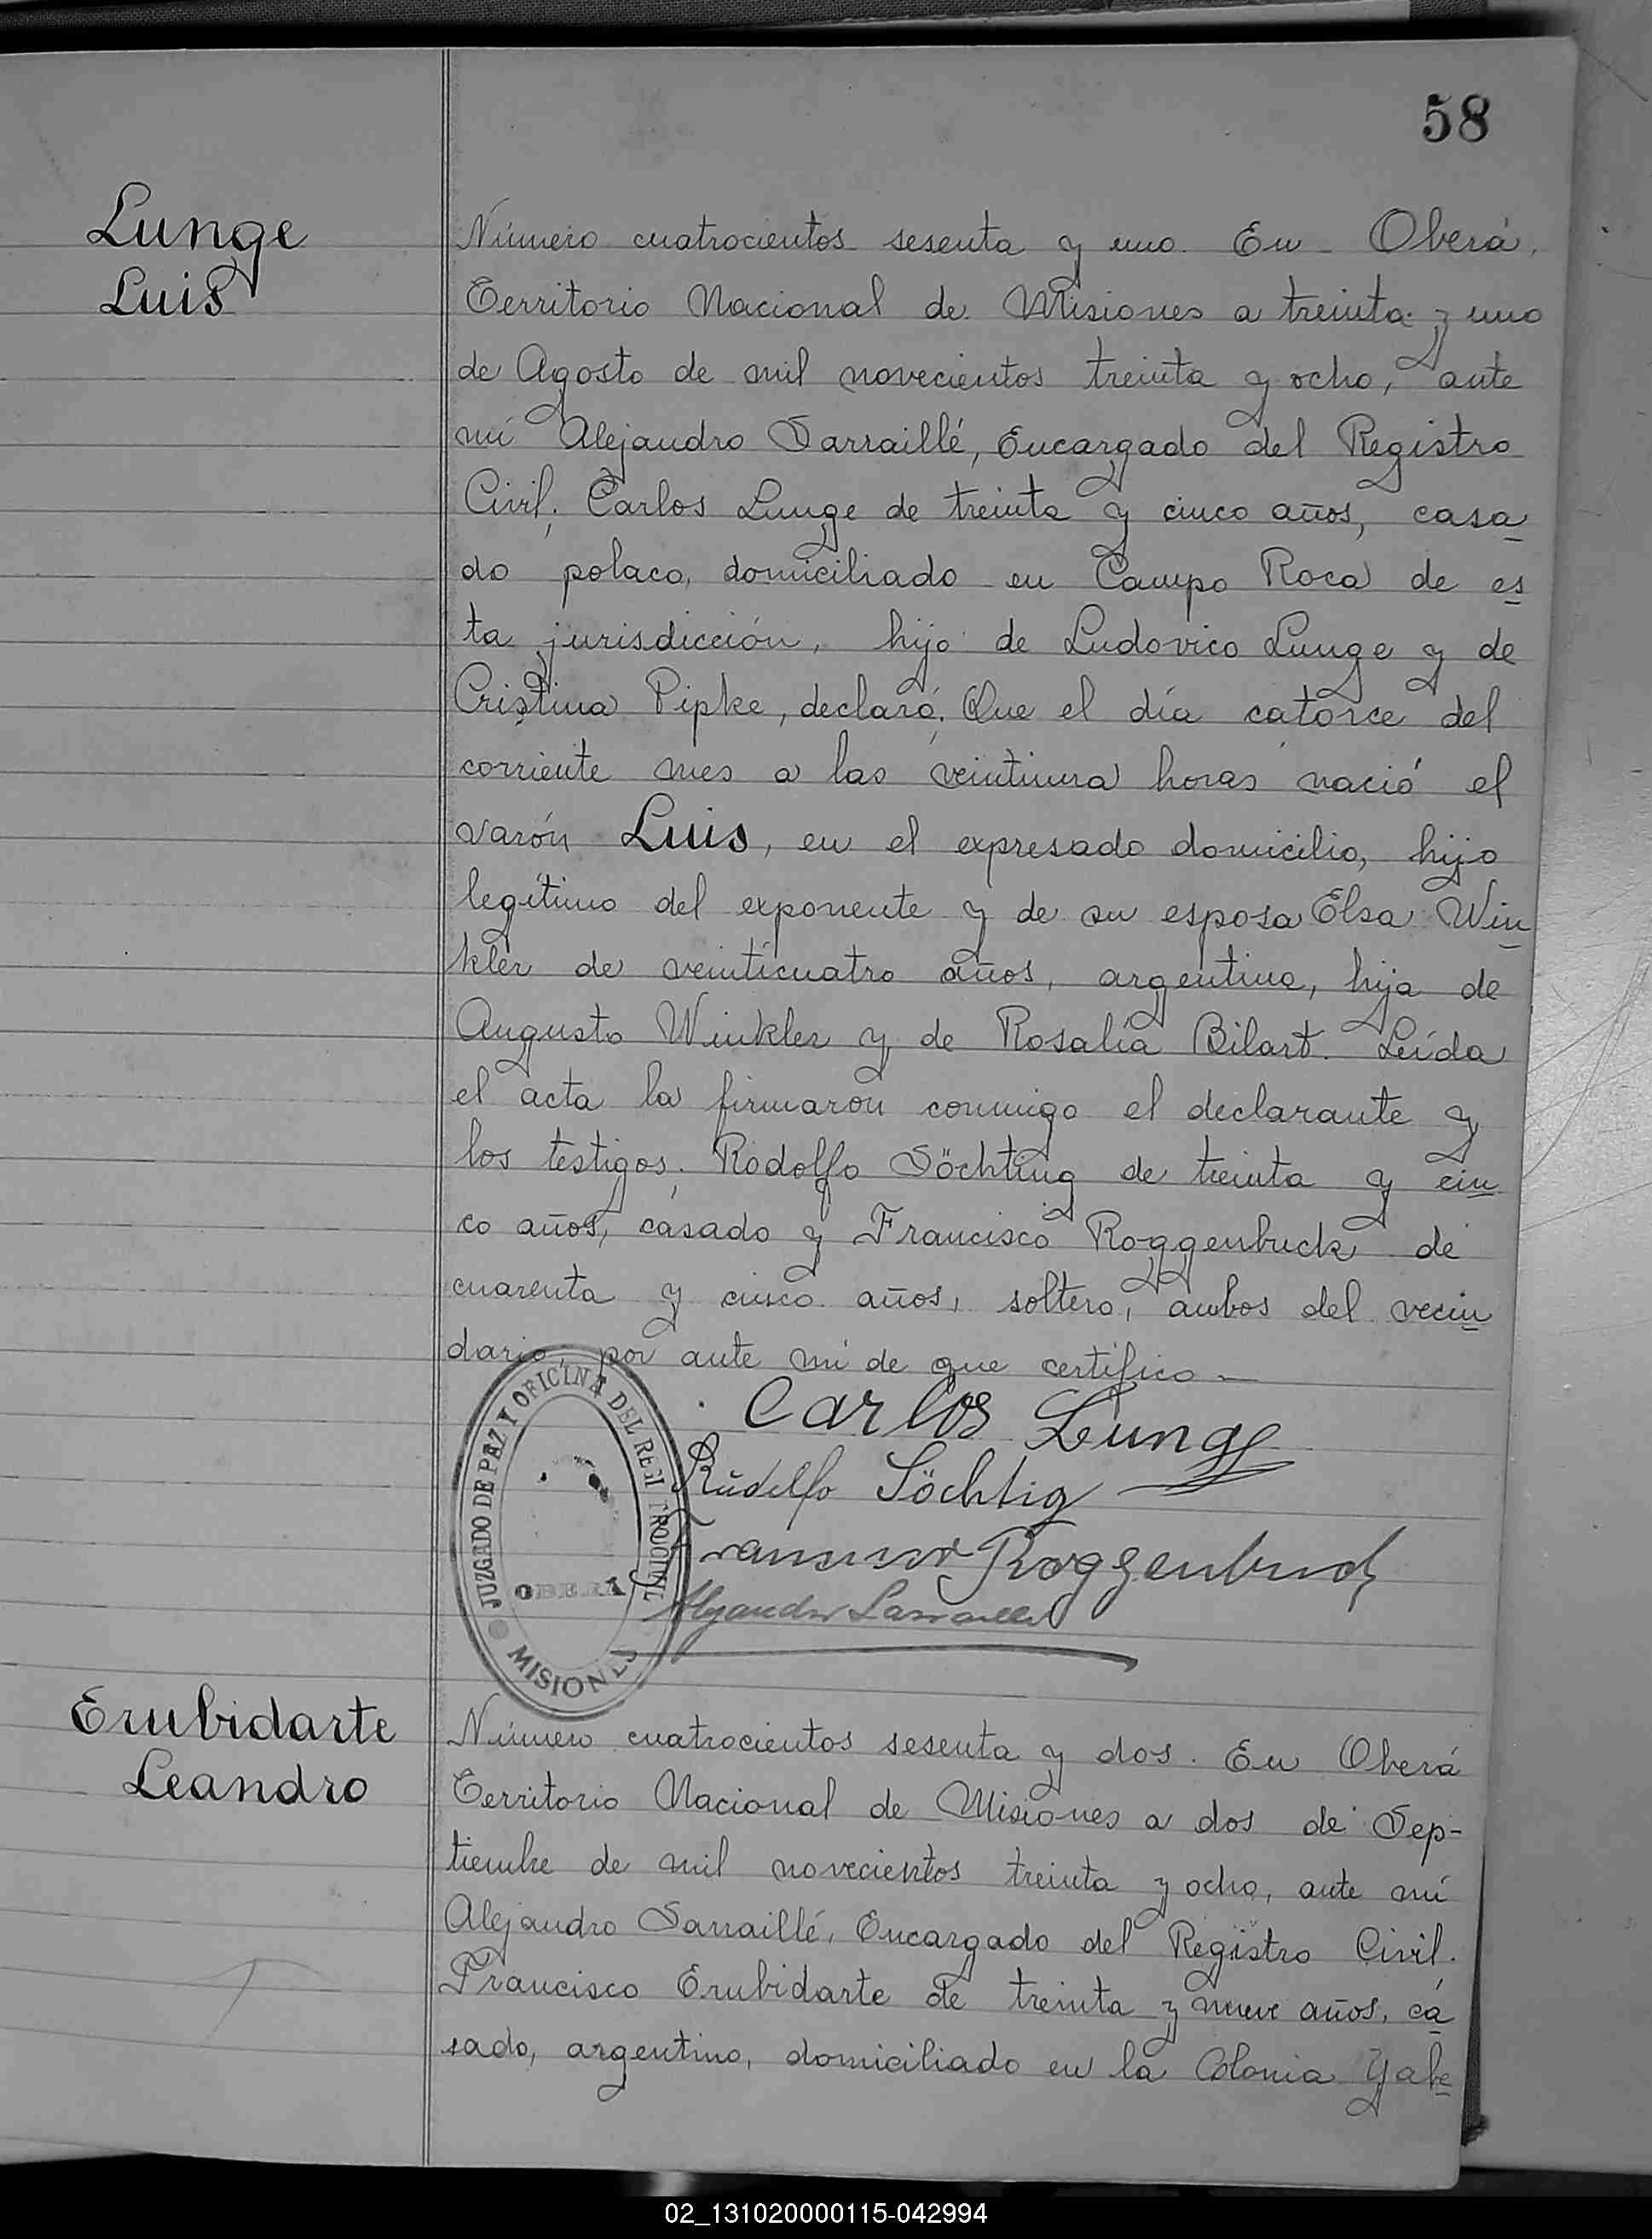 58
Lunge
Luis
Número cuatrocientos sesenta y uno. En Oberá,
Territorio Nacional de Misiones a treinta y uno
de Agosto de mil novecientos treinta y ocho, ante
mí Alejandro Sarraillé, Encargado del Registro
Civil; Carlos Lunge de treinta y cinco años, casa
do polaco, domiciliado en Campo Roca de es
ta jurisdicción, hijo de Ludovico Lunge y de
Cristina Pipke, declaró; Que el día catorce del
corriente mes a las veintiuna horas nació el
varón Luis, en el expresado domicilio, hijo
legítimo del exponente y de su esposa Elsa Win
kler de veinticuatro años, argentina, hija de
Augusto Winkler y de Rosalía Bilart. Leída
el acta la firmaron conmigo el declarante y
los testigos; Rodolfo Söchting de treinta y cin
co años, casado y Francisco Roggenbuck de
cuarenta y cinco años, soltero, ambos del vecin
dario, por ante mí de que certifico —
Carlos Lunge
Rudolfo Söchtig
Roggenbuck
Alejandro Sarraillé
JUZGADO DE PAZ Y OFICINA DEL
OBERA
MISIONES
Erubidarte
Leandro
Número cuatrocientos sesenta y dos. En Oberá
Territorio Nacional de Misiones a dos de Sep-
tiembre de mil novecientos treinta y ocho, ante mí
Alejandro Sarraillé, Encargado del Registro Civil.
Francisco Erubidarte de treinta y nueve años, ca
sado, argentino, domiciliado en la Colonia Yabe
02_131020000115-042994